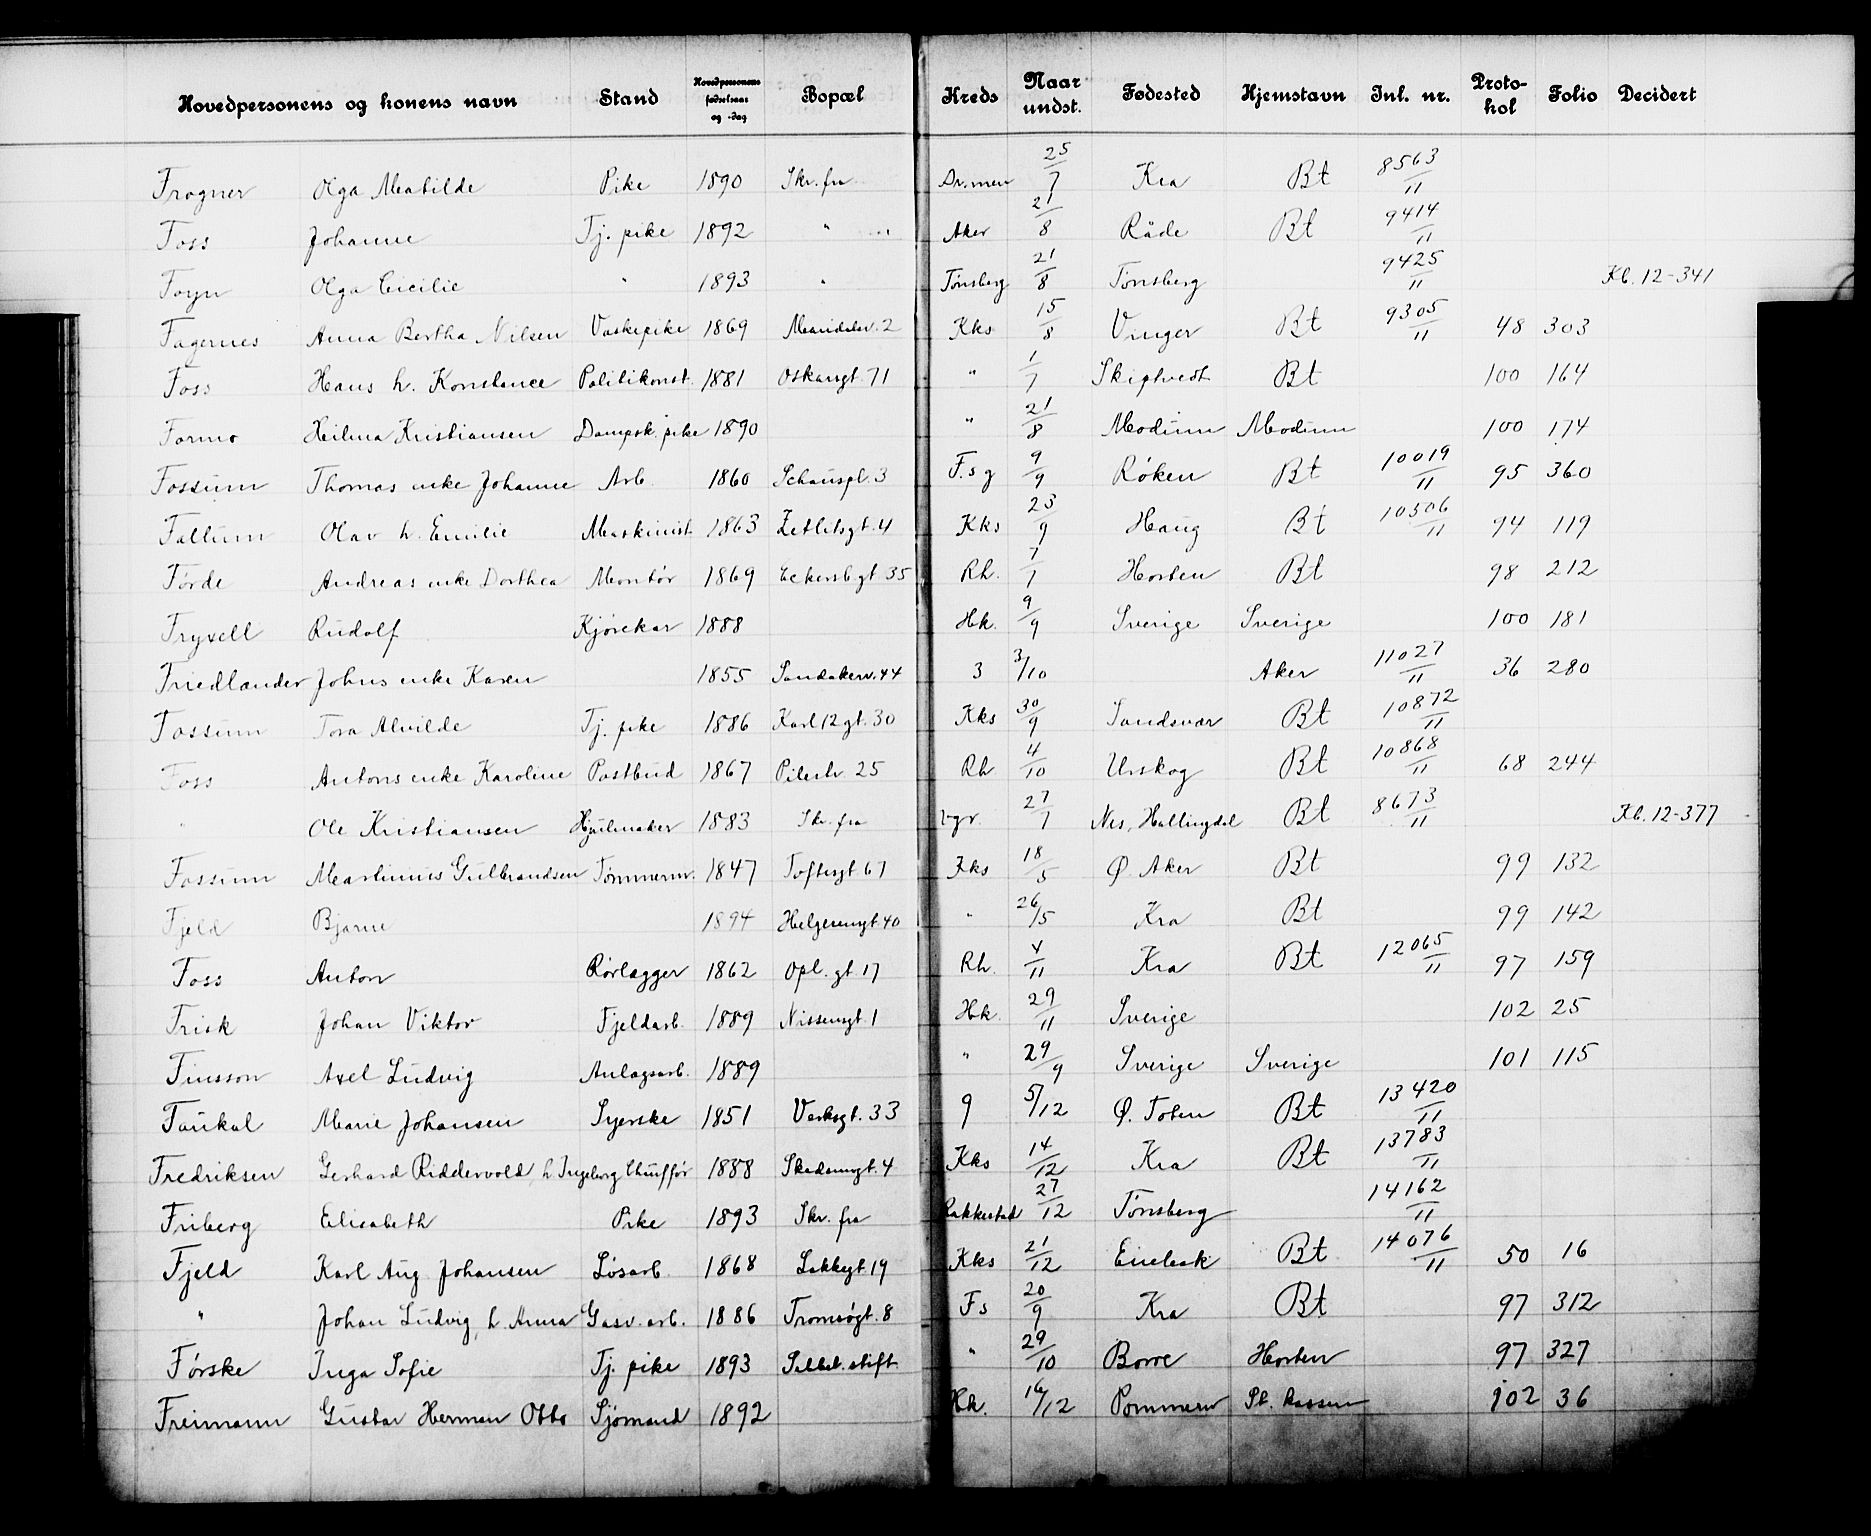 Hovedpersonens og konens navn Stand Hovedpersonens fødselsaar og -dag Bopæl Kreds Naar undst. Fødested Hjemstavn Inl. nr. Proto-kol Folio Decidert
Frogner Olga Matilde Pike 1890 Skr. fra Dr.men 25/7 Kra Bt 8563/11
Foss Johanne Tj. pike 1892 " Aker 21/8 Råde Bt 9414/11
Foyn Olga Cicilie " 1893 " Tønsberg 21/8 Tønsberg 9425/11 Kb. 12-341
Fagernes Anna Bertha Nilsen Vaskepike 1869 Maridalsv. 2 Kks 15/8 Vinger Bt 9305/11 48 303
Foss Hans h. Konstance Politikonst. 1881 Oskarsgt. 71 " 1/7 Skiptvedt Bt 100 164
Formo Hilma Kristiansen Dampsk. pike 1890 " 21/8 Modum Modum 100 174
Fossum Thomas enke Johanne Arb. 1860 Schouspl. 3 F.s g 9/9 Røken Bt 10019/11 95 360
Fallum Olav h. Emilie Maskinist 1863 Zetlitsgt. 4 Kks 23/9 Haug Bt 10506/11 94 119
Førde Andreas enke Dorthea Montør 1869 Eckersb.gt 35 Rh. 7/7 Horten Bt 98 212
Fryxell Rudolf Kjørekar 1888 Hk. 9/9 Sverige Sverige 100 181
Friedlander Johns enke Karen 1855 Sandakerv. 44 3 3/10 Aker 11027/11 36 280
Fossum Tora Alvilde Tj. pike 1886 Karl 12 gt. 30 Kks 30/9 Sandsvær Bt 10872/11
Foss Antons enke Karoline Postbud 1867 Pilestr. 25 Rh 4/10 Urskog Bt 10868/11 68 244
" Ole Kristiansen Hjulmaker 1883 Skr. fra 27/7 Nes, Hallingdal Bt 8673/11 Kb. 12-377
Fossum Martinius Gulbrandsen Tømmerm. 1847 Toftesgt 67 Kks 18/5 Ø. Aker Bt 99 132
Fjeld Bjarne 1894 Helgesensgt 40 " 26/5 Kra Bt 99 142
Foss Anton Rørlægger 1862 Opl. gt 17 Rh. 4/11 Kra Bt 12065/11 97 159
Frisk Johan Viktor Fjeldarb. 1889 Nissensgt. 1 Hk. 29/11 Sverige 102 25
Finsson Axel Ludvig Anlagsarb. 1889 " 29/9 Sverige Sverige 101 115
Faukal Marie Johansen Syerske 1851 Verksgt. 33 9 5/12 Ø. Toten Bt 13420/11
Fredriksen Gerhard Riddervold, h Ingeborg Chuffør 1888 Skedsmogt. 4 Kks 14/12 Kra Bt 13783/11
Friberg Elisabeth Pike 1893 Skr. fra Rakkestad 27/12 Tønsberg 14162/11
Fjeld Karl Aug. Johansen Løsarb. 1868 Lakkegt. 19 Kks 21/12 Enebak Bt 14076/11 50 16
" Johan Ludvig, h. Anna Gasv. arb. 1886 Tromsøgt. 8 Fs 20/9 Kra Bt 97 312
Førske Inga Sofie Tj. pike 1893 Selbet. stift " 29/10 Borre Horten 97 327
Freimann Gustav Herman Otto Sjømand 1892 Hk. 16/12 Pommern St. kassen 102 36